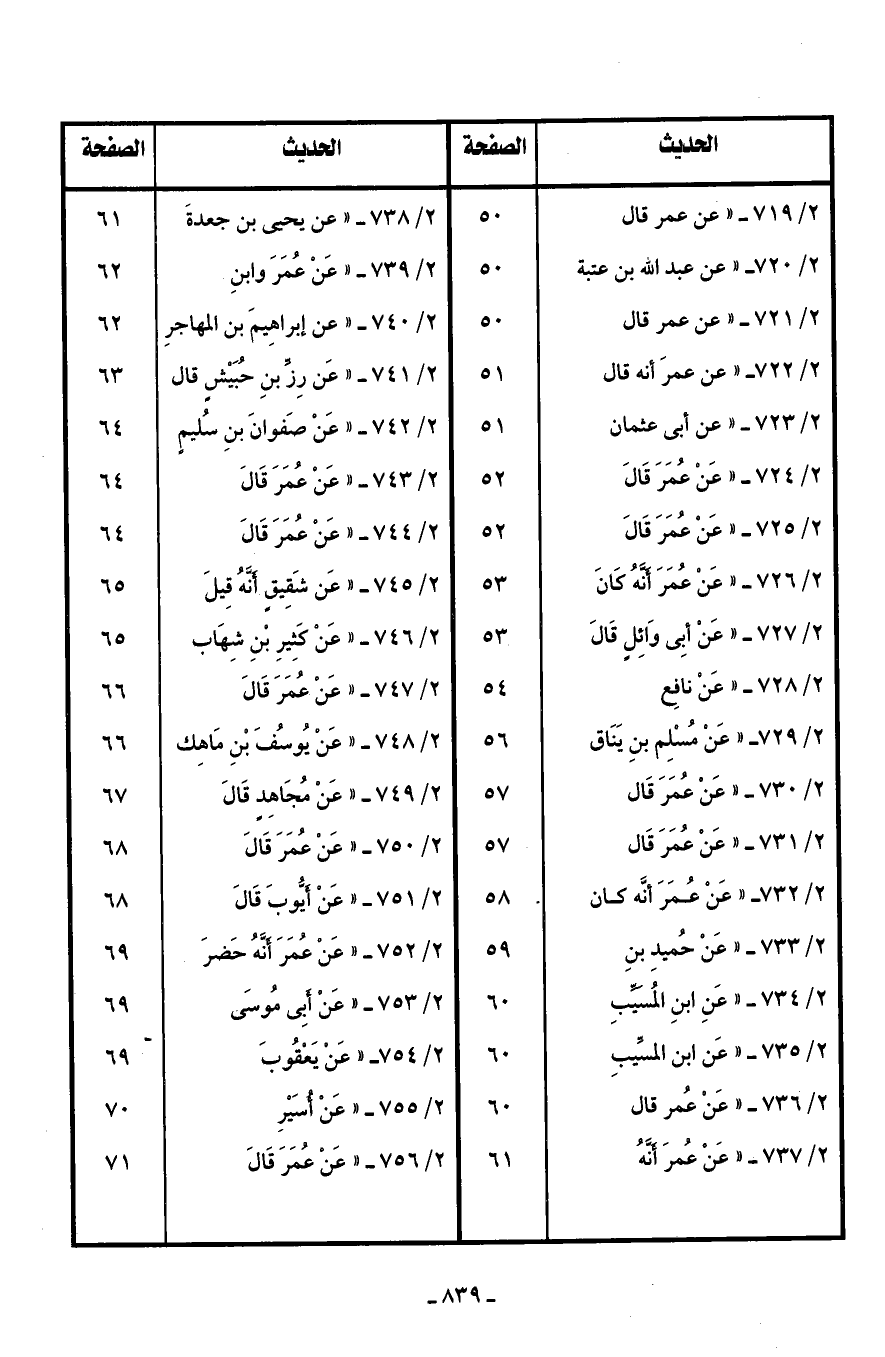 الحديث الصفحة الحديث الصفحة
٢/ ٧١٩ ـ « عن عمر قال ٥٠ ٢/ ٧٣٨ ـ « عن يحيى بن جعدةَ ٦١
٢/ ٧٢٠ـ « عن عبد الله بن عتبة ٥٠ ٢/ ٧٣٩ ـ « عَنْ عُمَرَ وابنِ ٦٢
٢/ ٧٢١ ـ « عن عمر قال ٥٠ ٢/ ٧٤٠ ـ « عن إبراهيمَ بن المهاجرِ ٦٢
٢/ ٧٢٢ـ « عن عمرَ أنه قال ٥١ ٢/ ٧٤١ ـ « عَن رِزِّ بنِ حُبَيْشٍ قال ٦٣
٢/ ٧٢٣ـ « عن أبى عثمان ٥١ ٢/ ٧٤٢ ـ « عَنْ صَفوانَ بنِ سُليمٍ ٦٤
٢/ ٧٢٤ ـ « عَنْ عُمَرَ قَالَ ٥٢ ٢/ ٧٤٣ ـ « عَنْ عُمَرَ قَالَ ٦٤
٢/ ٧٢٥ ـ « عَنْ عُمَرَ قَالَ ٥٢ ٢/ ٧٤٤ ـ « عَنْ عُمَرَ قَالَ ٦٤
٢/ ٧٢٦ ـ « عَنْ عُمَرَ أَنَّهُ كَانَ ٥٣ ٢/ ٧٤٥ ـ « عَن شَقِيقٍ أَنَّهُ قِيلَ ٦٥
٢/ ٧٢٧ ـ « عَنْ أبى وَائِلٍ قَالَ ٥٣ ٢/ ٧٤٦ ـ « عَنْ كَثِيرِ بْنِ شِهَاب ٦٥
٢/ ٧٢٨ ـ « عَنْ نافِع ٥٤ ٢/ ٧٤٧ ـ « عَنْ عُمَرَ قَالَ ٦٦
٢/ ٧٢٩ـ « عَنْ مُسْلِم بنِ يَنَاق ٥٦ ٢/ ٧٤٨ ـ « عَنْ يُوسُفَ بْنِ مَاهِك ٦٦
٢/ ٧٣٠ ـ « عَنْ عُمَرَ قَال ٥٧ ٢/ ٧٤٩ ـ « عَنْ مُجَاهِدٍ قَالَ ٦٧
٢/ ٧٣١ ـ « عَنْ عُمَرَ قَال ٥٧ ٢/ ٧٥٠ ـ « عَنْ عُمَرَ قَالَ ٦٨
٢/ ٧٣٢ـ « عَنْ عُـمَرَ أنَّه كـان ٥٨ ٢/ ٧٥١ ـ « عَنْ أَيُّوبَ قَالَ ٦٨
٢/ ٧٣٣ ـ « عَنْ حُميدِ بنِ ٥٩ ٢/ ٧٥٢ ـ « عَنْ عُمَرَ أَنَّهُ حَضرَ ٦٩
٢/ ٧٣٤ ـ « عَنِ ابنِ المُسَيِّب ٦٠ ٢/ ٧٥٣ ـ « عَنْ أَبِى مُوسَى ٦٩
٢/ ٧٣٥ ـ « عَن ابن المسيِّب ٦٠ ٢/ ٧٥٤ـ « عَنْ يَعْقُوبَ ٦٩
٢/ ٧٣٦ ـ « عَنْ عُمر قال ٦٠ ٢/ ٧٥٥ ـ « عَنْ أُسَيْرِ ٧٠
٢/ ٧٣٧ ـ « عَنْ عُمرَ أَنَّهُ ٦١ ٢/ ٧٥٦ ـ « عَنْ عُمَرَ قَالَ ٧١
ـ ٨٣٩ ـ